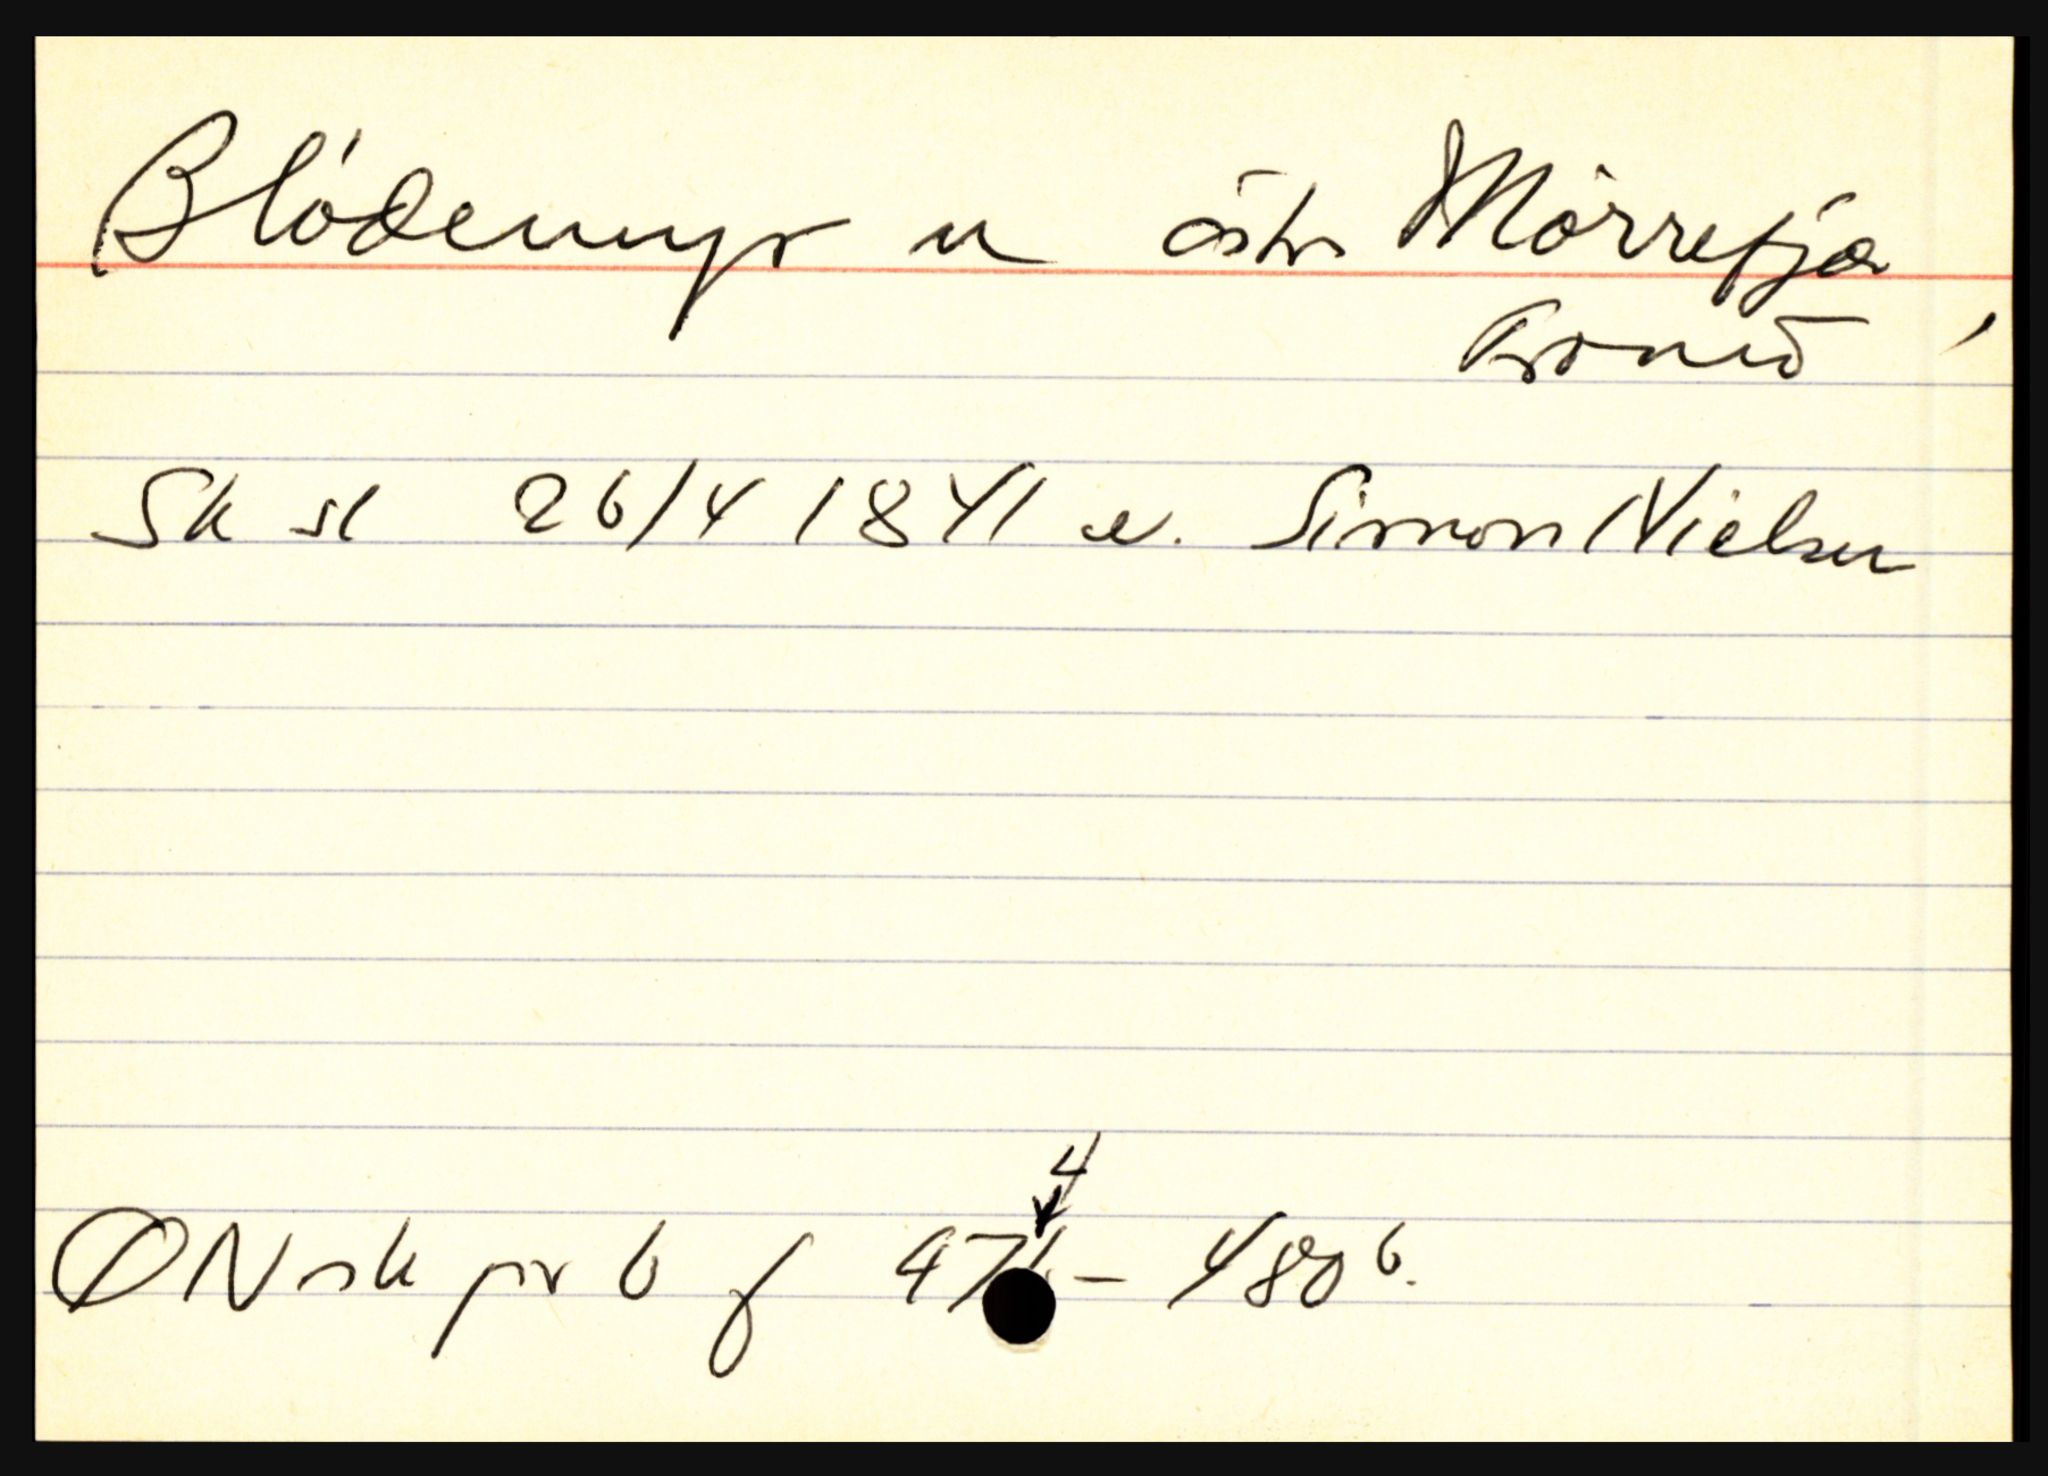 Blödemyr u östre Mörrefjær,
Sk sl 26/4 1841 e. Simon Nielsen
4
ØN sk pr 6 f 47 - 480 b.